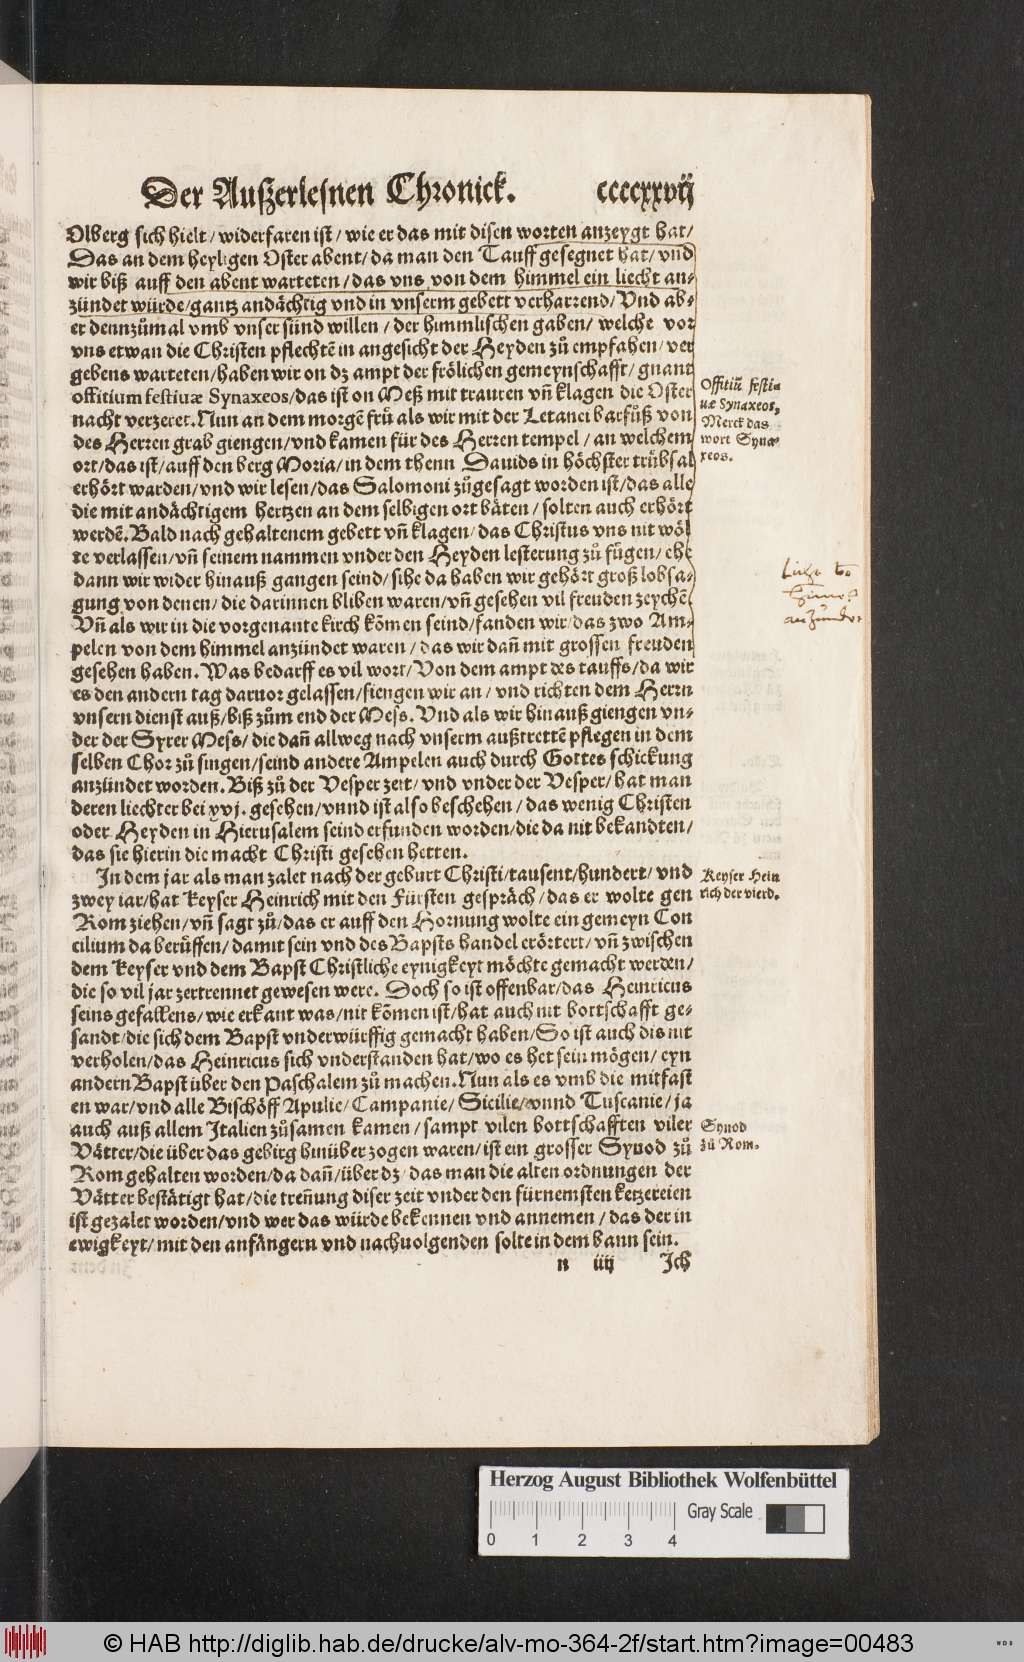 Der Außerlesnen Chronick. ccccxxvij
Olberg sich hielt/ widerfaren ist/ wie er das mit disen worten anzeygt hat/
Das an dem heyligen Oster abent/ da man den Tauff gesegnet hat/ vnd
wir biß auff den abent warteten/ das vns von dem himmel ein liecht an⸗
zündet würde/ gantz andächtig vnd in vnserm gebett verharrend/ Vnd ab⸗
er dennzůmal vmb vnser sünd willen/ der himmlischen gaben/ welche vor
vns etwan die Christen pflechtē in angesicht der Heyden zů empfahen/ ver
gebens warteten/ haben wir on dz ampt der frölichen gemeynschafft/ gnant
offitium festiuæ Synaxeos/ das ist on Meß mit trauren vñ klagen die Oster
nacht verzeret. Nun an dem morgē frů als wir mit der Letanei barfůß von
des Herren grab giengen/ vnd kamen für des Herren tempel/ an welchem
ort/ das ist/ auff den berg Moria/ in dem thenn Dauids in höchster trübsal
erhört warden/ vnd wir lesen/ das Salomoni zůgesagt worden ist/ das alle
die mit andächtigem hertzen an dem selbigen ort bäten/ solten auch erhört
werdē. Bald nach gehaltenem gebett vñ klagen/ das Christus vns nit wöl
te verlassen/ vñ seinem nammen vnder den Heyden lesterung zů fügen/ ehe
dann wir wider hinauß gangen seind/ sihe da haben wir gehört groß lobsa⸗
gung von denen/ die darinnen bliben waren/ vñ gesehen vil freuden zeychē.
Vñ als wir in die vorgenante kirch kōmen seind/ fanden wir/ das zwo Am⸗
pelen von dem himmel anzündet waren/ das wir dañ mit grossen freuden
gesehen haben. Was bedarff es vil wort/ Von dem ampt des tauffs/ da wir
es den andern tag daruor gelassen/ fiengen wir an/ vnd richten dem Herrn
vnsern dienst auß/ biß zům end der Mess. Vnd als wir hinauß giengen vn⸗
der der Syrer Mess/ die dañ allweg nach vnserm außtrettē pflegen in dem
selben Chor zů singen/ seind andere Ampelen auch durch Gottes schickung
anzündet worden. Biß zů der Vesper zeit/ vnd vnder der Vesper/ hat man
deren liechter bei xvj. gesehen/ vnnd ist also beschehen/ das wenig Christen
oder Heyden in Hierusalem seind erfunden worden/ die da nit bekandten/
das sie hierin die macht Christi gesehen hetten.
In dem jar als man zalet nach der geburt Christi/ tausent/ hundert/ vnd
zwey iar/ hat Keyser Heinrich mit den Fürsten gespräch/ das er wolte gen
Rom ziehen/ vñ sagt zů/ das er auff den Hornung wolte ein gemeyn Con
cilium da berüffen/ damit sein vnd des Bapsts handel erörtert/ vñ zwischen
dem Keyser vnd dem Bapst Christliche eynigkeyt möchte gemacht werden/
die so vil jar zertrennet gewesen were. Doch so ist offenbar/ das Heinricus
seins gefallens/ wie erkant was/ nit kōmen ist/ hat auch nit bottschafft ge⸗
sandt/ die sich dem Bapst vnderwürffig gemacht haben/ So ist auch dis nit
verholen/ das Heinricus sich vnderstanden hat/ wo es het sein mögen/ eyn
andern Bapst über den Paschalem zů machen. Nun als es vmb die mitfast
en war/ vnd alle Bischöff Apulie/ Campanie/ Sicilie/ vnnd Tuscanie/ ja
auch auß allem Italien zůsamen kamen/ sampt vilen bottschafften viler
Vätter/ die über das gebirg hinüber zogen waren/ ist ein grosser Synod zů
Rom gehalten worden/ da dañ/ über dz/ das man die alten ordnungen der
Vätter bestätigt hat/ die treñung diser zeit vnder den fürnemsten ketzereien
ist gezalet worden/ vnd wer das würde bekennen vnd annemen/ das der in
ewigkeyt/ mit den anfängern vnd nachuolgenden solte in dem bann sein.
n iiij Ich
Offitiū festi⸗
uæ Synaxeos,
Merck das
wort Syna⸗
xeos.
Keyser Hein
rich der vierd.
Synod
zů Rom.
Herzog August Bibliothek Wolfenbüttel
Gray Scale
0 1 2 3 4
© HAB http://diglib.hab.de/drucke/alv-mo-364-2f/start.htm?image=00483